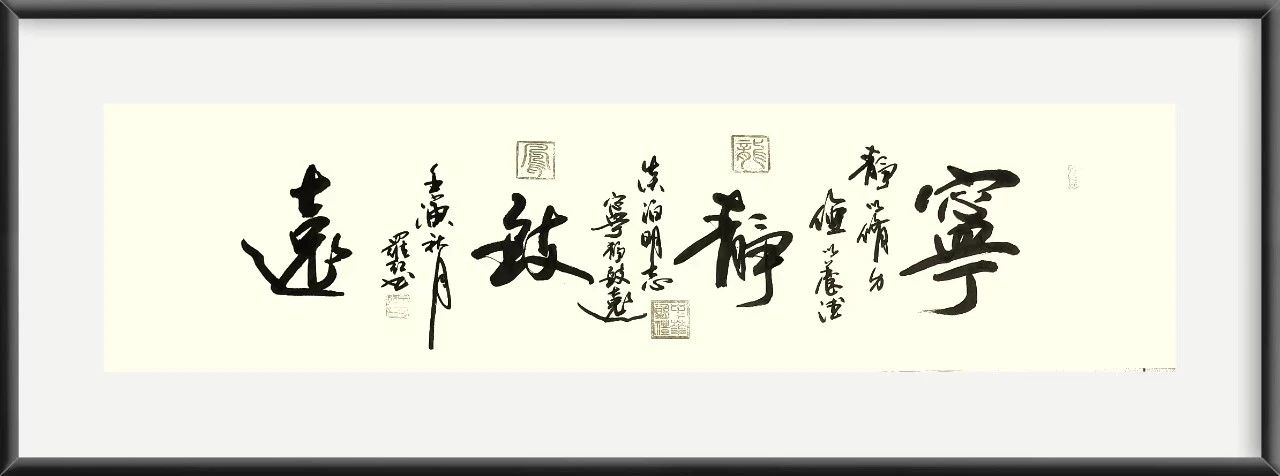 寧
靜以修身
儉以養德
龍
靜
淡泊明志
寧靜致遠
中華
鳳
致
壬寅秋月
羅
遠